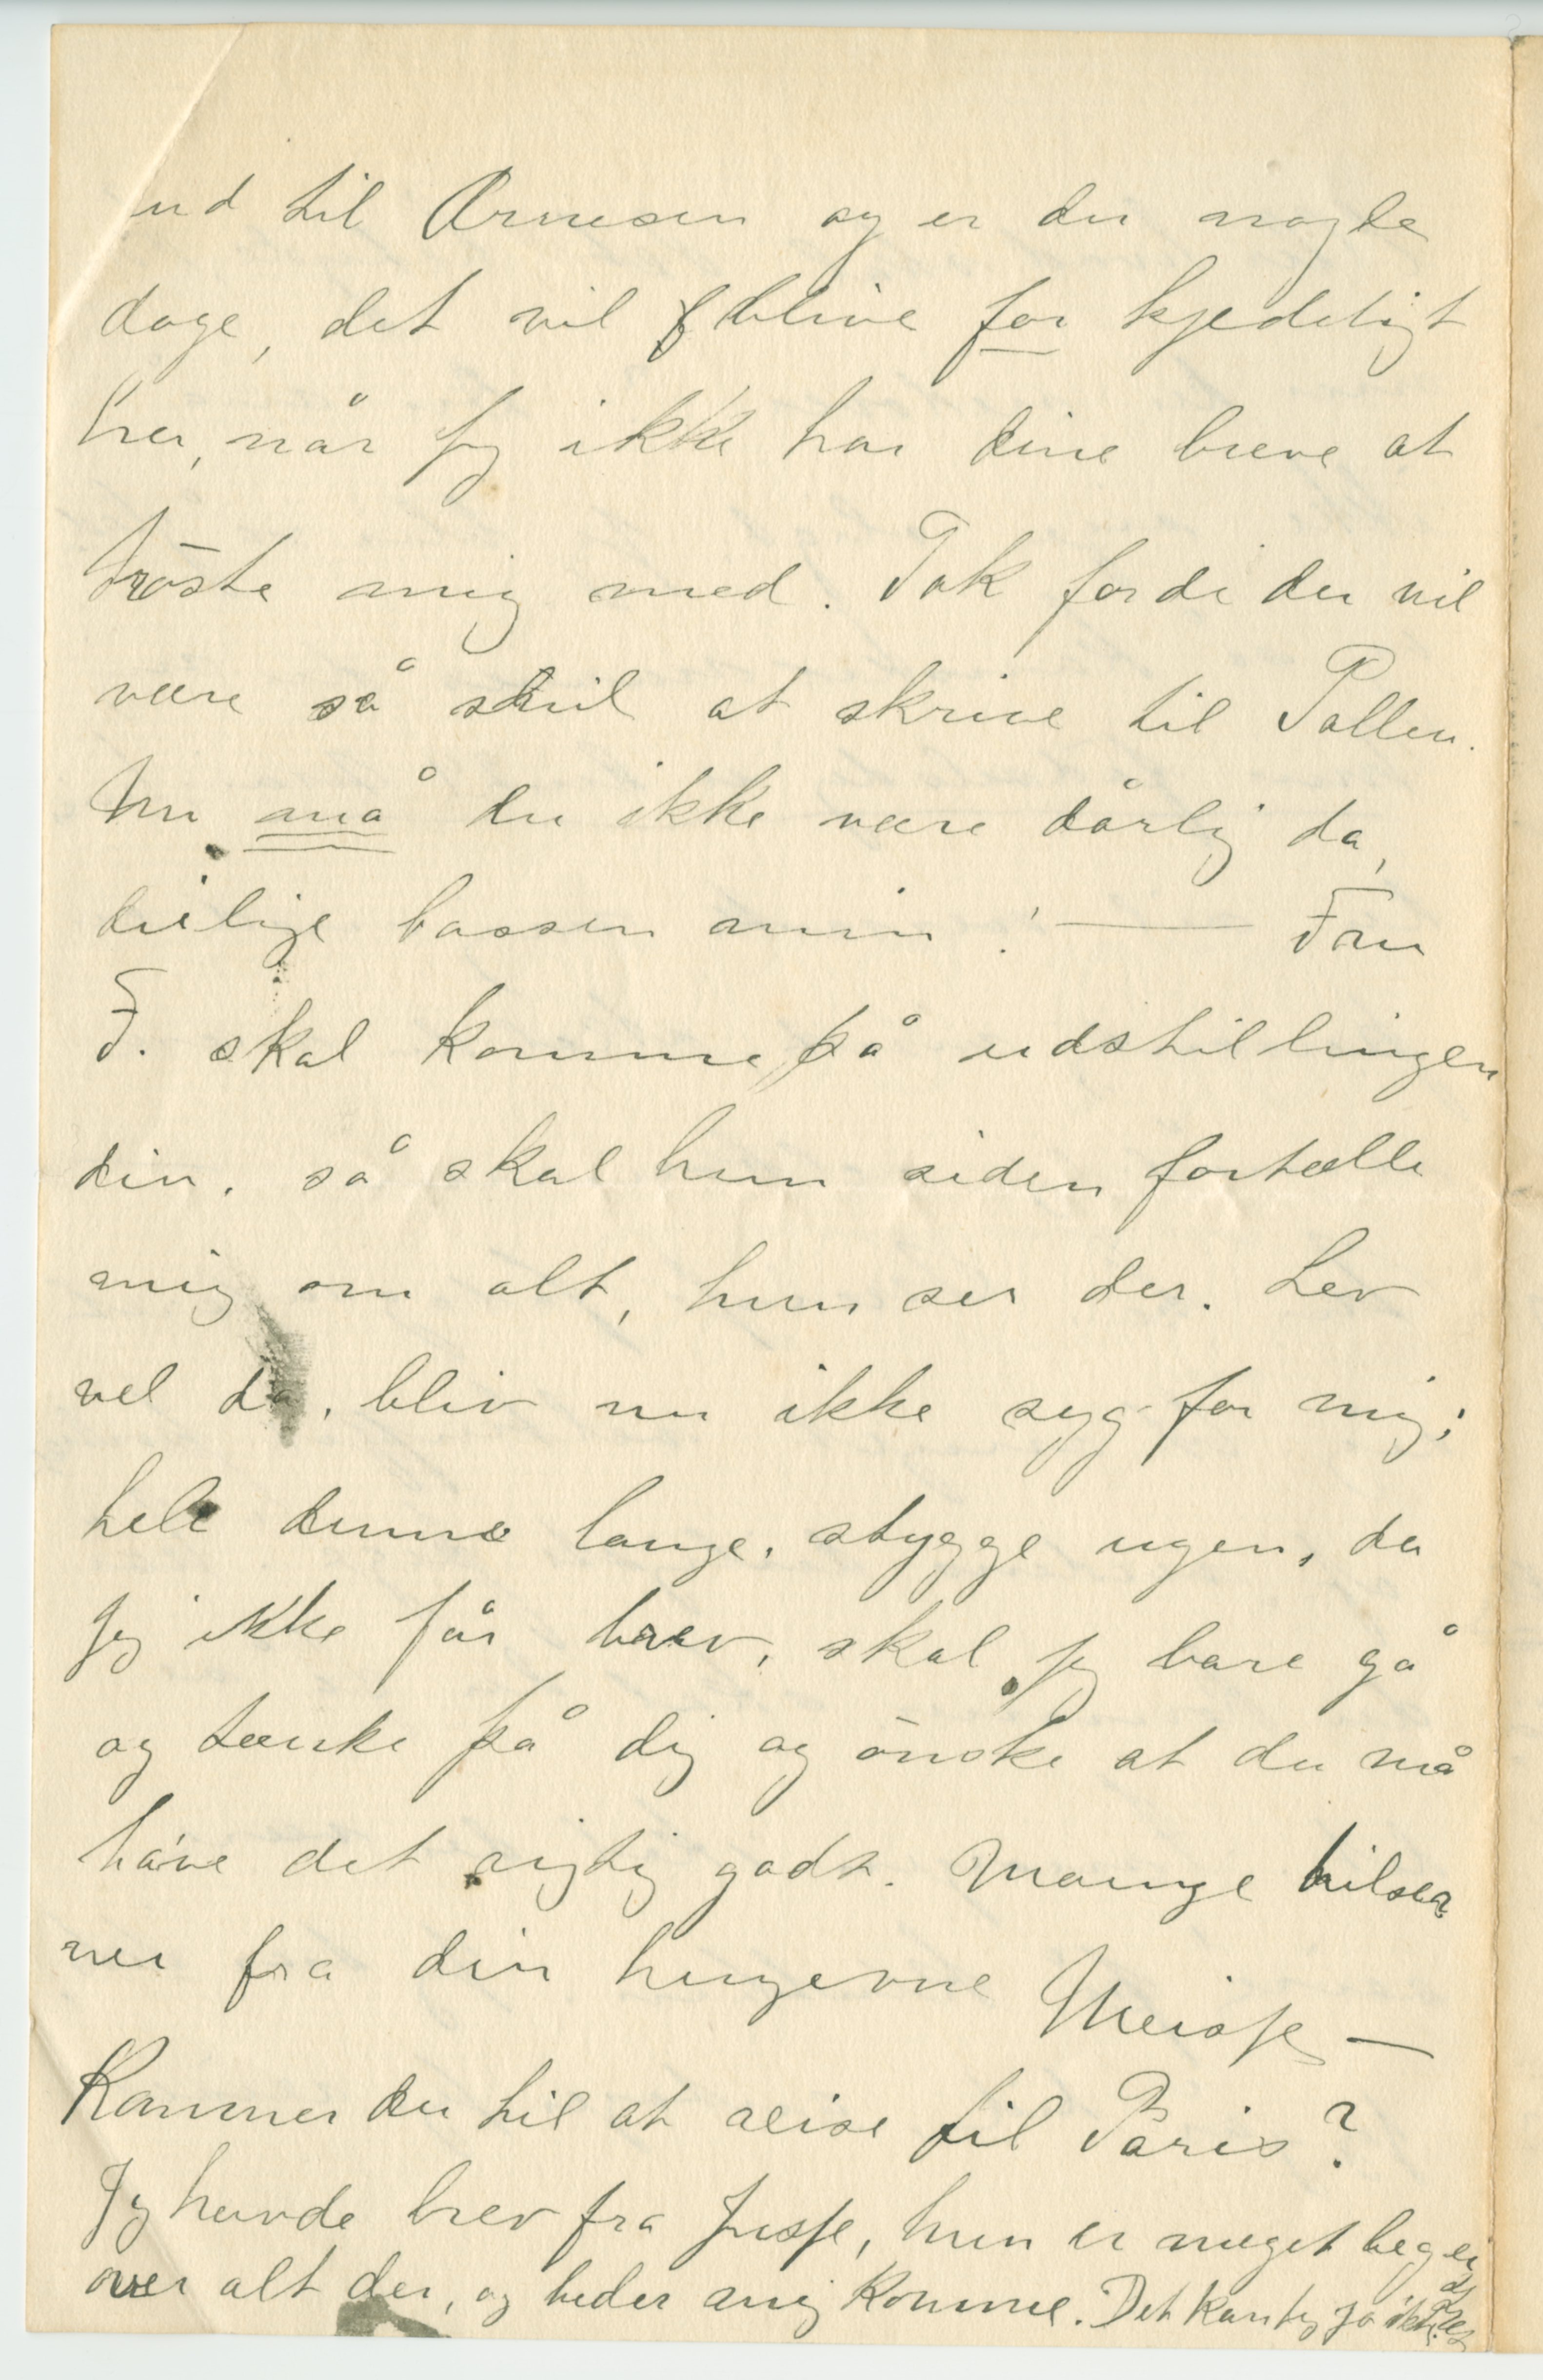 ud til Arnesen og er der nogle
dage, det vil blive for kjedeligt
her, når jeg ikke har dine breve at
trøste mig med. Tak fordi du vil
være så snil at skrive til Pallen.
Nu må du ikke være dårlig da,
deilige bassen min! — Fru
F. skal komme på udstillingen
din, så skal hun siden fortælle
mig om alt, hun ser der. Lev
vel da, bliv nu ikke syg for mig;
hele denne lange, stygge ugen, da
jeg ikke får brev, skal jeg bare gå
og tænke på dig og ønske at du må
have det rigtig godt. Mange hilse
ner fra din hengivne Meisse —
Kommer du til at reise til Paris?
Jeg havde brev fra Jusse, hun er meget begei
over alt der, og beder mig komme. Det kan jeg jo ikke.